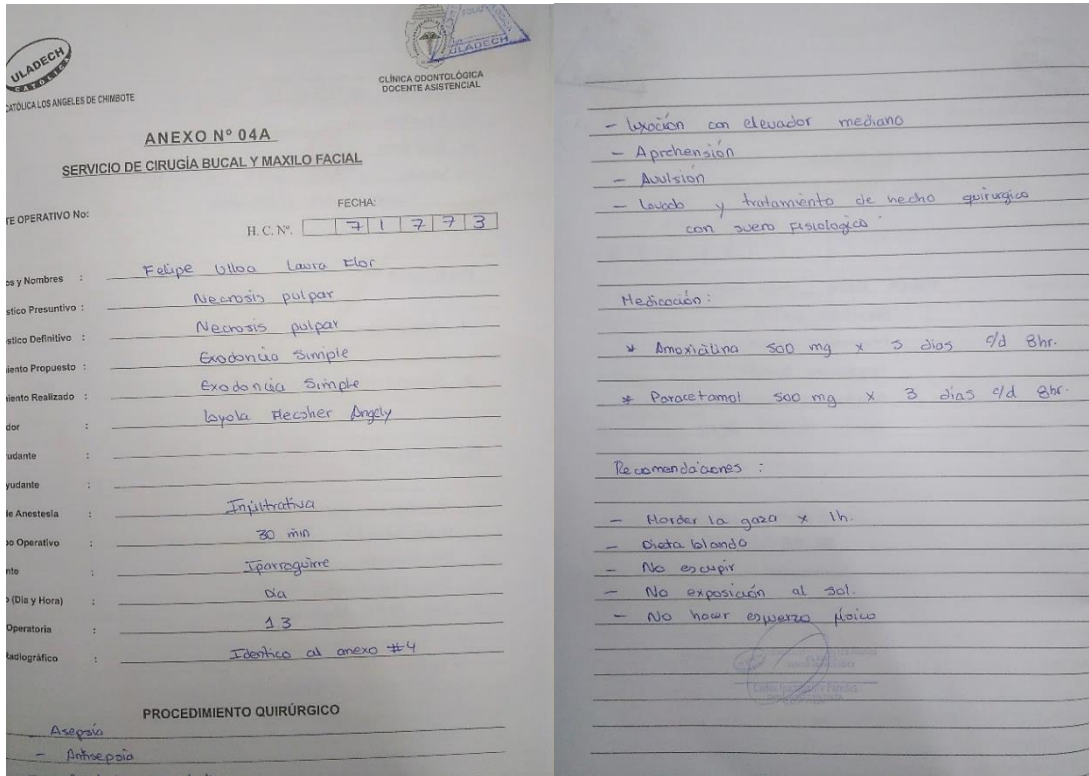 ULADECH
CATÓLICA
CATÓLICA LOS ANGELES DE CHIMBOTE
ULADECH
CLÍNICA ODONTOLÓGICA
DOCENTE ASISTENCIAL
ANEXO Nº 04A
SERVICIO DE CIRUGÍA BUCAL Y MAXILO FACIAL
TE OPERATIVO No:
FECHA:
H. C. Nº. 7 1 7 7 3
os y Nombres : Felipe Ulloa Laura Flor
stico Presuntivo : Necrosis pulpar
stico Definitivo : Necrosis pulpar
iento Propuesto : Exodoncia Simple
iento Realizado : Exodoncia Simple
dor : Loyola Angely
udante :
yudante :
de Anestesia : Infiltrativa
po Operativo : 30 min
nte : Iparraguirre
o (Dia y Hora) : Dia
Operatoria : 13
Radiográfico : Identico al anexo #4
PROCEDIMIENTO QUIRÚRGICO
Asepsia
- Antisepsia
- luxación con elevador mediano
- Aprehensión
- Avulsión
- lavado y tratamiento de hecho quirurgico
con suero fisiologico
Medicación :
* Amoxicilina 500 mg x días c/d 8hr.
* Paracetamol 500 mg x 3 días c/d 8hr.
Recomendaciones :
- Morder la gaza x 1h.
- Dieta blanda
- No escupir
- No exposición al sol.
- No hacer esfuerzo físico